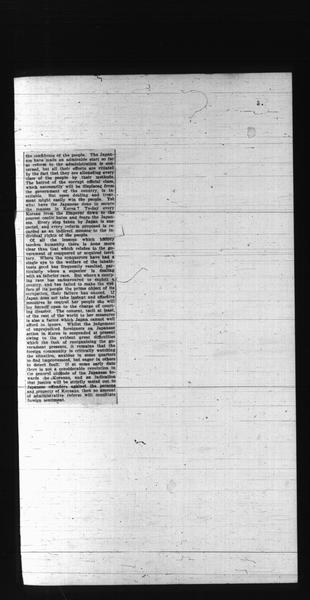 3.
the confidence of the people. The Japan-
ese have made an admirable start so far
as reform in the administration is con-
cerned, but all their efforts are vitiated
by the fact that they are alienating every
class of the people by their methods.
The hatred of the corrupt official class,
which necessarily will be displaced from
the government of the country, is in-
evitable. But open dealing and treat-
ment might easily win the people. Yet
what have the Japanese done to secure
the masses in Korea? Today every
Korean from the Emperor down to the
poorest coolie hates and fears the Japan-
ese. Every step taken by Japan is sus-
pected, and every reform proposed is re-
garded as an indirect menace to the in-
dividual rights of the people.
Of all the lessons which history
teaches humanity there is none more
clear than that which relates to the go-
vernment of conquered or acquired terri-
tory. Where the conquerors have had a
single eye to the welfare of the inhabi-
tants good has frequently resulted, par-
ticularly where a superior is dealing
with an inferior race. But where a conq-
uering race has endeavoured to exploit a
country, and has failed to make the wel-
fare of its people the prime object of its
occupation, their failure has ensued. If
Japan does not take instant and effective
measures to control her people she will
lay herself open to the charge of court-
ing disaster. The consent, tacit at least,
of the rest of the world to her measures
is also a factor which Japan cannot well
afford to ignore. Whilst the judgement
of unprejudiced foreigners on Japanese
action in Korea is suspended at present
owing to the evident gross difficulties
which the task of reorganising the go-
vernment presents, it remains that the
foreign community is critically watching
the situation, anxious in some quarters
to find improvement, but eager in others
to detect fault. If at some early date
there is not a considerable revolution in
the general attitude of the Japanese to-
wards the Koreans, and an indication
that justice will be strictly meted out to
Japanese offenders against the persons
and property of Koreans, then no amount
of administrative reform will conciliate
foreign sentiment.